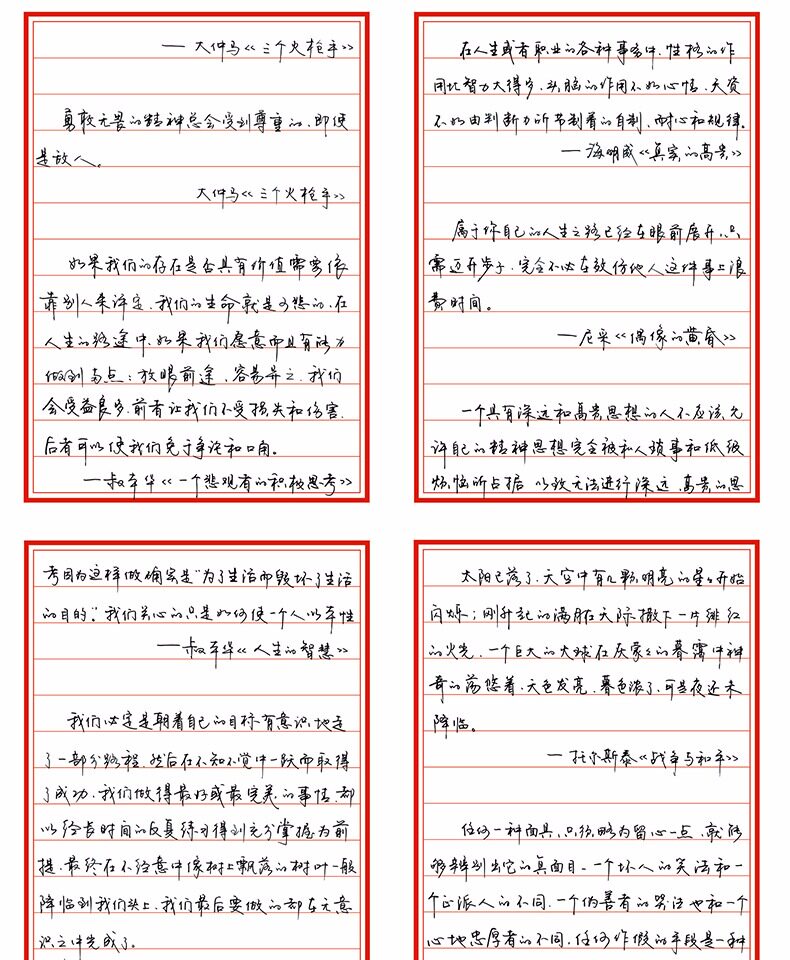 — 大仲马《三个火枪手》
勇敢无畏的精神总会受到尊重的、即使
是敌人。
大仲马《三个火枪手》
如果我们的存在是否具有价值需要依
靠别人来评定、我们的生命就是可悲的、在
人生的路途中、如果我们愿意而且有能力
做到两点：放眼前途、容易弃之、我们
会受益良多、前者让我们不受损失和伤害、
后者可以使我们免于争论和口角。
—叔本华《一个悲观者的积极思考》
在人生或者职业的各种事务中、性格的作
用比智力大得多、头脑的作用不如心情、天资
不如由判断力所节制着的自制、耐心和规律。
—海明威《真实的高贵》
属于你自己的人生之路已经在眼前展开、只
需迈开步子、完全不必在效仿他人这件事上浪
费时间。
—尼采《偶像的黄昏》
一个具有深远和高贵思想的人不应该允
许自己的精神思想完全被私人琐事和低级
烦恼所占据 以致无法进行深远、高贵的思
考因为这样做确实是“为了生活而毁坏了生活
的目的”、我们关心的只是如何使一个人以本性
—叔本华《人生的智慧》
我们必定是朝着自己的目标有意识地走
了一部分路程、然后在不知不觉中一跃而取得
了成功、我们做得最好或最完美的事情、都
以经长时间的反复练习得到充分掌握为前
提、最终在不经意中像树上飘落的树叶一般
降临到我们头上、我们最后要做的都在无意
识之中完成了。
太阳已落了、天空中有几颗明亮的星々开始
闪烁；刚升起的满月在天际撒下一片绯红
的火光、一个巨大的火球在灰蒙々的暮霭中神
奇的荡悠着、天色发亮、暮色浓了、可是夜还未
降临。
— 托尔斯泰《战争与和平》
任何一种面具、只须略为留心一点、就能
够辨别出它的真面目、一个坏人的笑法和一
个正派人的不同、一个伪善者的哭法也和一个
心地忠厚者的不同、任何作假的手段是一种